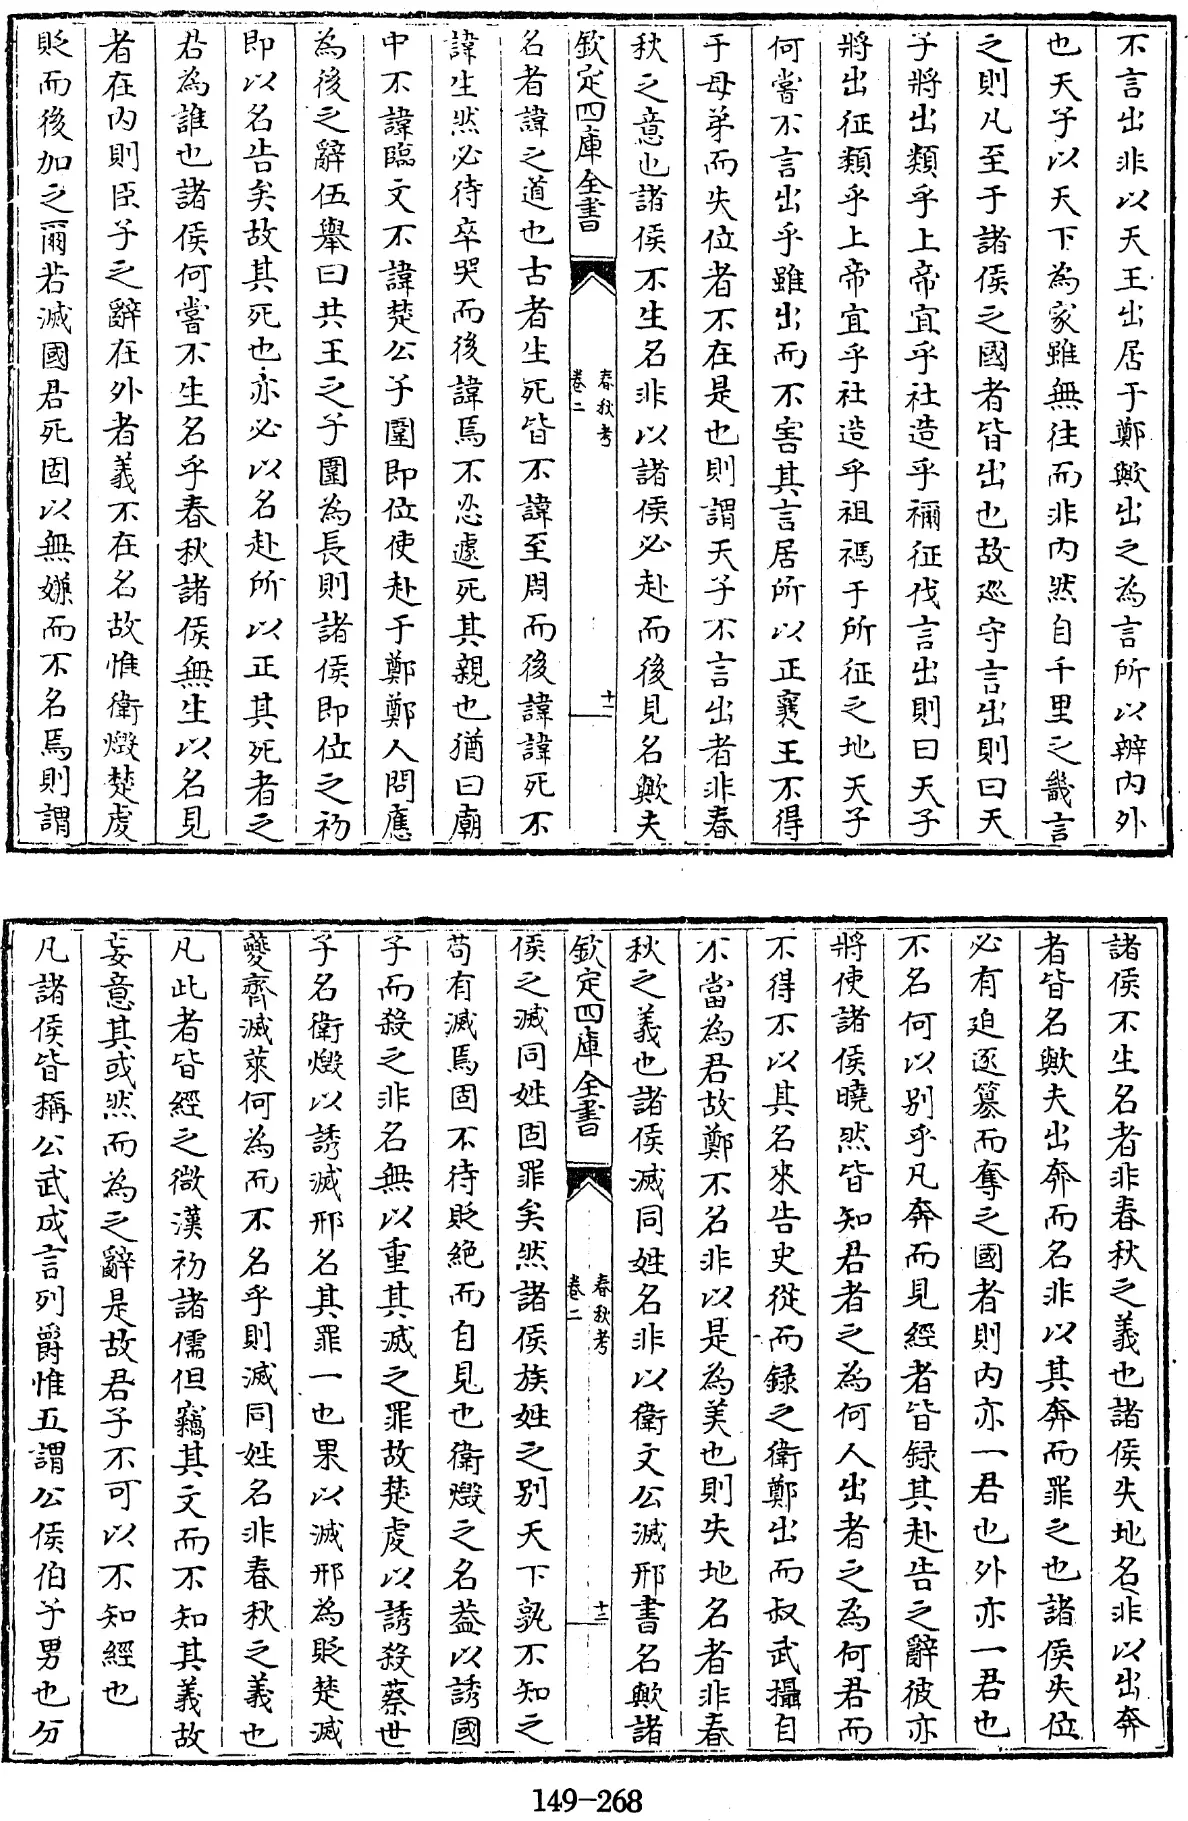 不言出非以天王出居于鄭歟出之為言所以辨内外
也天子以天下為家雖無往而非内然自千里之畿言
之則凡至于諸侯之國者皆出也故廵守言出則曰天
子將出類乎上帝宜乎社造乎禰征伐言出則曰天子
將出征類乎上帝宜乎社造乎祖禡于所征之地天子
何嘗不言出乎雖出而不害其言居所以正襄王不得
于母弟而失位者不在是也則謂天子不言出者非春
秋之意也諸侯不生名非以諸侯必赴而後見名歟夫
欽定四庫全書
春秋考
卷二
十二
名者諱之道也古者生死皆不諱至周而後諱諱死不
諱生然必待卒哭而後諱焉不忍遽死其親也猶曰廟
中不諱臨文不諱楚公子圍即位使赴于鄭鄭人問應
為後之辭伍舉曰共王之子圍為長則諸侯即位之初
即以名告矣故其死也亦必以名赴所以正其死者之
君為誰也諸侯何嘗不生名乎春秋諸侯無生以名見
者在内則臣子之辭在外者義不在名故惟衛燬楚䖍
貶而後加之爾若滅國君死固以無嫌而不名焉則謂
諸侯不生名者非春秋之義也諸侯失地名非以出奔
者皆名歟夫出奔而名非以其奔而罪之也諸侯失位
必有廹逐簒而奪之國者則内亦一君也外亦一君也
不名何以别乎凡奔而見經者皆録其赴告之辭彼亦
將使諸侯曉然皆知君者之為何人出者之為何君而
不得不以其名來告史從而録之衛鄭出而叔武攝自
不當為君故鄭不名非以是為美也則失地名者非春
秋之義也諸侯滅同姓名非以衛文公滅邢書名歟諸
欽定四庫全書
春秋考
卷二
十三
侯之滅同姓固罪矣然諸侯族姓之别天下孰不知之
苟有滅焉固不待貶絶而自見也衛燬之名葢以誘國
子而殺之非名無以重其滅之罪故楚䖍以誘殺蔡世
子名衛燬以誘滅邢名其罪一也果以滅邢為貶楚滅
夔齊滅萊何為而不名乎則滅同姓名非春秋之義也
凡此者皆經之微漢初諸儒但竊其文而不知其義故
妄意其或然而為之辭是故君子不可以不知經也
凡諸侯皆稱公武成言列爵惟五謂公侯伯子男也分
149-268